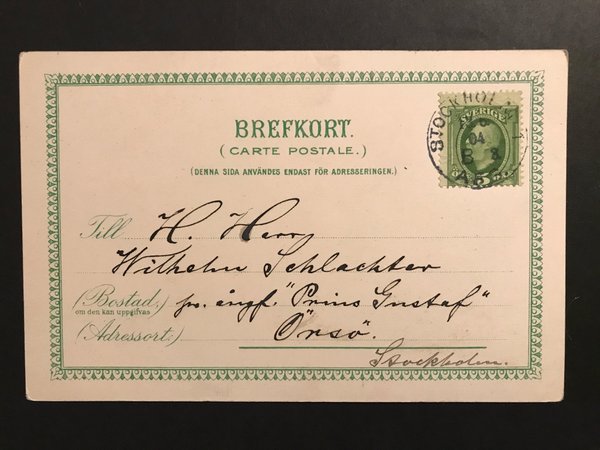 BREFKORT.
(CARTE POSTALE.)
(DENNA SIDA ANVÄNDES ENDAST FÖR ADRESSERINGEN.)
STOCKHOLM
04
B 8
SVERIGE
Till H. Herr
Wilhelm Schlachter
(Bostad, pr. ångf. "Prins Gustaf"
om den kan uppgifvas
(Adressort) Örsö.
Stockholm.